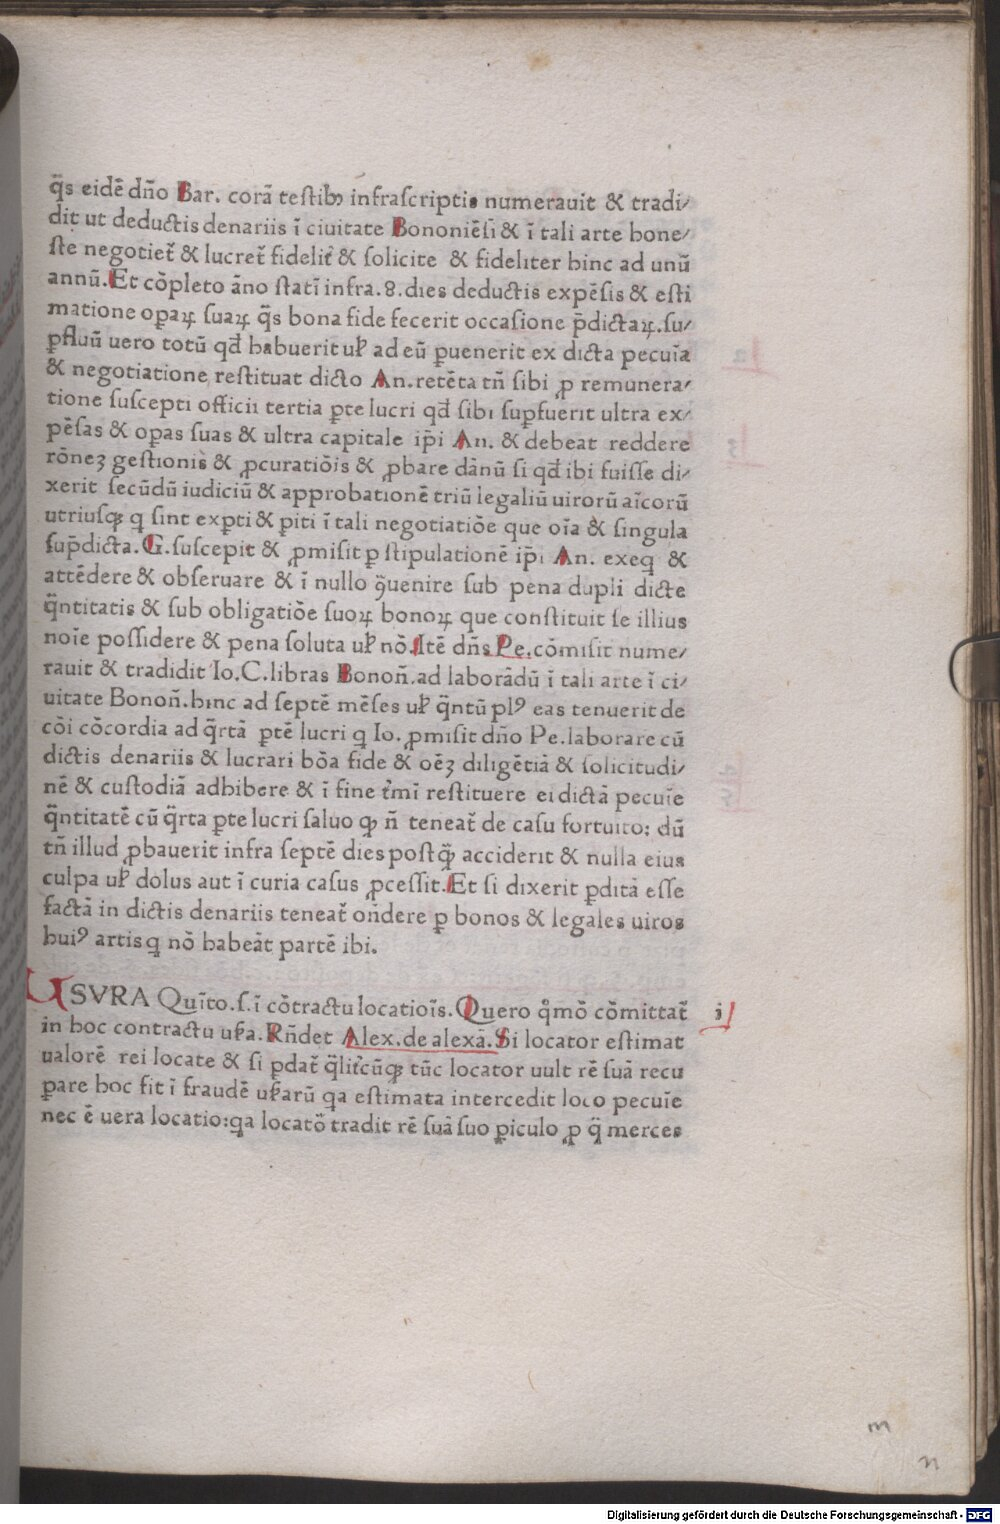 q̄s eidē dn̄o Bar. corā testibꝯ infrascriptis numerauit & tradi/
dit ut deductis denariis ī ciuitate Bononiēſi & ī tali arte hone/
ſte negotiet̄ & lucret̄ fidelit̄ & ſolicite & fideliter hinc ad unū
annū. Et cōpleto āno ſtatī infra.8.dies deductis expēſis & eſti
matione oꝑaꝝ ſuaꝝ q̄s bona fide fecerit occaſione p̄dictaꝝ.ſu/
ꝑfluū uero totū qd̄ habuerit uł ad eū ꝑuenerit ex dicta pecuīa
& negotiatione reſtituat dicto An.retēta tn̄ ſibi ꝓ remunera/
tione ſuſcepti officii tertia ꝑte lucri qd̄ ſibi ſuꝑfuerit ultra ex/
pēſas & oꝑas ſuas & ultra capitale ip̄i An. & debeat reddere
rōneꝫ geſtionis & ꝓcuratiōis & ꝓbare dānū ſi qd̄ ibi fuiſſe di/
xerit ſecūdū iudiciū & approbationē triū legaliū uirorū aīcorū
utriuſqꝫ q ſint exꝑti & ꝑiti ī tali negotiatiōe que oīa & ſingula
ſup̄dicta. G.ſuſcepit & ꝓmiſit ꝑ ſtipulationē ip̄i An. exeq &
attēdere & obſeruare & ī nullo ꝯ̄uenire ſub pena dupli dicte
q̄ntitatis & ſub obligatiōe ſuoꝝ bonoꝝ que conſtituit ſe illius
noīe poſſidere & pena ſoluta uł nō. Itē dn̄s Pe.cōmiſit nume/
rauit & tradidit Io.C.libras Bonon̄.ad laborādū ī tali arte ī ci/
uitate Bonon̄.hinc ad ſeptē mēſes uł q̄ntū plꝰ eas tenuerit de
cōi cōcordia ad q̄rtā ꝑtē lucri q Io. ꝓmiſit dn̄o Pe.laborare cū
dictis denariis & lucrari bōa fide & oēꝫ diligētiā & ſolicitudi/
nē & cuſtodiā adhibere & ī fine t̄mī reſtituere ei dictā pecuīe
q̄ntitatē cū q̄rta ꝑte lucri ſaluo qꝫ n̄ teneat̄ de caſu fortuito: dū
tn̄ illud ꝓbauerit infra ſeptē dies poſtq̄ꝫ acciderit & nulla eius
culpa uł dolus aut ī curia caſus ꝓceſſit.Et ſi dixerit ꝑditā eſſe
factā in dictis denariis teneat̄ on̄dere ꝑ bonos & legales uiros
huiꝰ artis q nō habeāt partē ibi.
USVRA Quīto.ſ.ī cōtractu locatioīs. Quero qͦmō cōmittat̄
i
in hoc contractu uſ̄a. Rn̄det Alex.de alexā. Si locator eſtimat
ualorē rei locate & ſi ꝑdat̄ q̄lit̄cūqꝫ tūc locator uult rē ſuā recu
ꝑare hoc fit ī fraudē uſ̄arū qa eſtimata intercedit loco pecuīe
nec ē uera locatio:qa locatō tradit rē ſuā ſuo ꝑiculo ꝓ q̄ merces
m
n
Digitalisierung gefördert durch die Deutsche Forschungsgemeinschaft - DFG